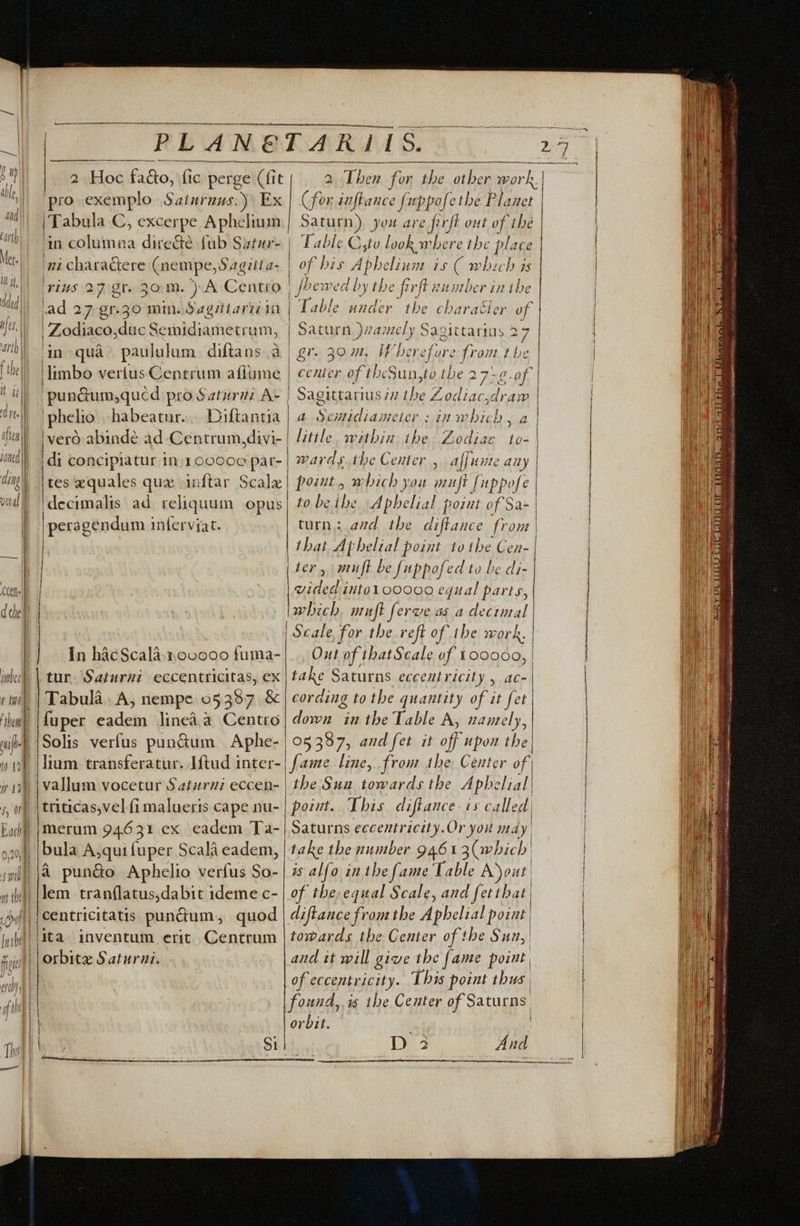 PLANETARIIS. 27
2 Hoc facto, sic perge (sit
pro exemplo Saturnus.) Ex
Tabula C, excerpe Aphelium
in columna directè sub Satur-
ni charactere (nempe, Sagitta-
rius 27 gr. 30 m. ) A Centro
ad 27 gr. 30 min. Sagittarii in
Zodiaco, duc Semidiametrum,
in quâ paululum distans à
limbo versus Centrum assume
punctum, quod pro Saturni A-
phelio habeatur. Distantia
verò abinde ad Centrum, divi-
di concipiatur in 100000 par-
tes æquales quæ instar Scalæ
decimalis ad reliquum opus
peragendum inserviat.
In hâc Scalâ 100000 suma-
tur Saturni eccentricitas, ex
Tabulâ A, nempe 05387 &
super eadem lineâ à Centro
Solis versus punctum Aphe-
lium transferatur. Istud inter-
vallum vocetur Saturni eccen-
triticas, vel si malueris cape nu-
merum 94631 ex eadem Ta-
bula A, qui super Scalâ eadem,
à puncto Aphelio versus So-
lem translatus, dabit idem ec-
centricitatis punctum, quod
ita inventum erit Centrum
orbitæ Saturni.
Si
2. Then for the other work,
(for instance suppose the Planet
Saturn) you are first out of the
Table C, to look where the place
of his Aphelium is ( which is
shewed by the first number in the
Table under the character of
Saturn) namely Sagittarius 27
gr. 30 m. Wherefore from the
center of the Sun, to the 27-2.of
Sagittarius in the Zodiac, draw
a Semidiameter : in which, a
little within the Zodiac to-
wards the Center , assume any
point, which you must suppose
to be the Aphelial point of Sa-
turn: and the distance from
that Aphelial point to the Cen-
ter, must be supposed to be di-
vided into 100000 equal parts,
which must serve as a decimal
Scale, for the rest of the work.
Out of that Scale of 100000,
take Saturns eccentricity , ac-
cording to the quantity of it set
down in the Table A, namely,
05387, and set it off upon the
same line, from the Center of
the Sun towards the Aphelial
point. This distance is called
Saturns eccentricity. Or you may
take the number 94613(which
is also in the same Table A) out
of the equal Scale, and set that
distance from the Aphelial point
towards the Center of the Sun,
and it will give the same point
of eccentricity. This point thus
found, is the Center of Saturns
orbit.
D 2 And